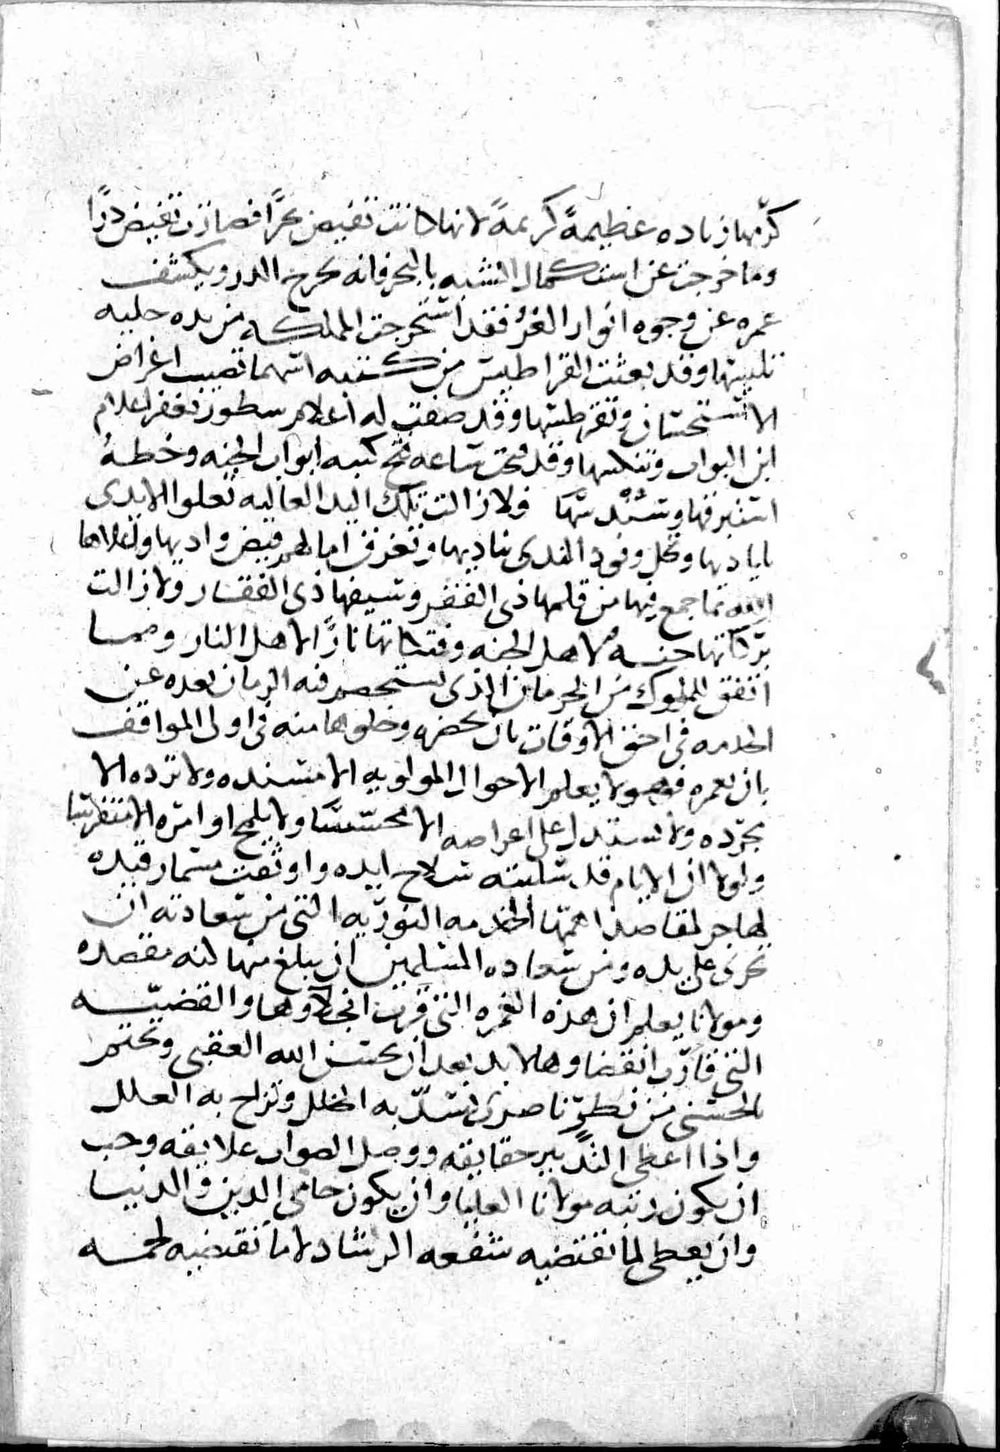 كرّمها زياده عظيمةً كريمةً لانها كانت تفيض بحرًا فصارت تفيض درًا
وما خرجت عن استكمال المشبه بالبحر فانه يخرج الدرر ويكشف
عمره عن وجوه انوار الغرر فقد استخرجت المملكه من يده حليه
تلبسها وقد بعثت القراطيس من كتبه اسهما تصيب اغراض
الاستحسان وتقرطسها وقد صفت له اعلام سطور تفخر اعلام
ابن البواب وتنكسها وقد فتحت ساعه فتح كتبه ابواب الجنه وخطه
استبرقها وسندسها ولا زالت تلك اليد العاليه تعلو الايدى
باياديها وتحل وفود الندى بناديها وتغرق امالهم فيض واديها واعلاها
الله بما جمع فيها من قلمها ذى الفقر وسيفها ذى الفقار ولا زالت
بركاتها جنةً لاهل الجنه وفتكاتها نارًا لاهل النار ومما
اتفق للمملوك من الحرمان الذى يستحضر فيه الزمان بعده عن
الخدمه فى احق الاوقات بان يحضره وخلوها منه فى اولى المواقف
بان يعمره فهو لا يعلم الاحوال المولويه الا مسنده ولا ترده الا
مجرّده ولا يستدل على اعراضه الا محسّسًا ولا يلمح اوامره الا متفرسًا
ولولا ان الايام قد سلبته سلاح ايده واوثقت مسمار قيده
لهاجر لمقاصد اهمّها الخدمه النوريّه التى من سعادته ان
تجرى على يده ومن سعاده المسلمين ان يبلغ منها لنه مقصده
ومولانا يعلم ان هذه الغمره التى قرب انجلاوها والقضيّه
التى قارب انقضاوها لا بد بعد ان يحسن الله العقبى ويختم
بالحسنى من نظر ناصرى تسدّ به الخلل وتزاح به العلل
واذا اعطى التدبير حقايقه ووصل الصواب علايقه وجب
ان يكون رتبه مولانا العليا وان يكون حامى الدين والدنيا
وان يعطى لما تقتضيه شفعه الرشاد لا ما تقتضيه لحمه